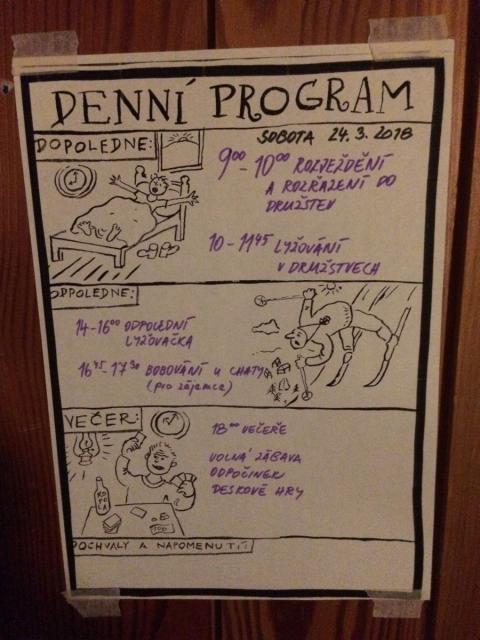 DENNÍ PROGRAM
DOPOLEDNE:
SOBOTA 24.3.2018
9⁰⁰-10⁰⁰ ROZJEŽDĚNÍ
A ROZŘAZENÍ DO
DRUŽSTEV
10-11⁴⁵ LYŽOVÁNÍ
V DRUŽSTVECH
ODPOLEDNE:
14-16⁰⁰ ODPOLEDNÍ
LYŽOVAČKA
16⁴⁵-17³⁰ BOBOVÁNÍ U CHATY
(pro zájemce)
VEČER:
18⁰⁰ VEČEŘE
VOLNÁ ZÁBAVA
ODPOČINEK
DESKOVÉ HRY
KOFOLA
POCHVALY A NAPOMENUTÍ: